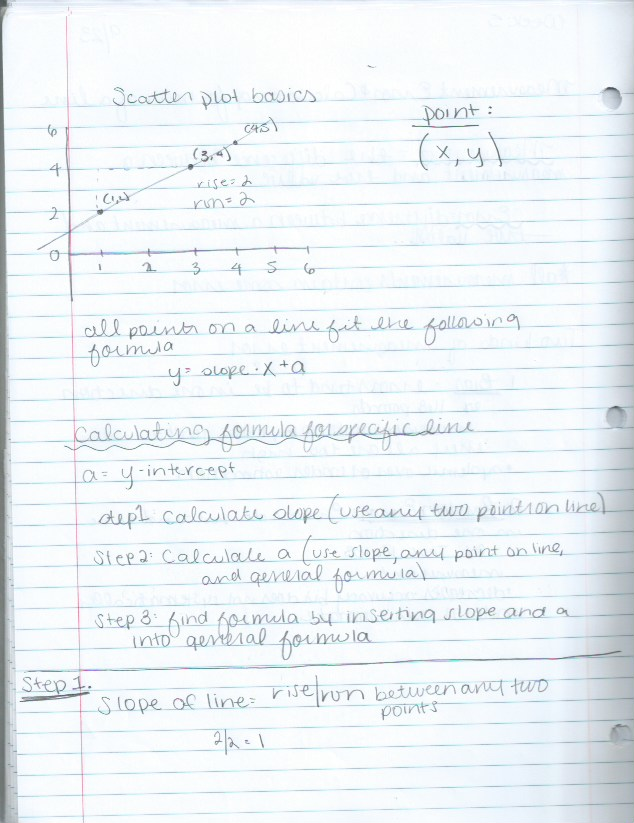 Scatter plot basics
point:
(x, y)
6
4
2
0
(1,2)
(3,4)
(4,5)
rise=2
run=2
1 2 3 4 5 6
all points on a line fit the following
formula
y= slope · x + a
Calculating formula for specific line
a= y-intercept
step1 Calculate slope (use any two points on line)
Step2: Calculate a (use slope, any point on line,
and general formula)
Step 3: find formula by inserting slope and a
into general formula
Step 1.
Slope of line= rise/run between any two
points
2/2 = 1